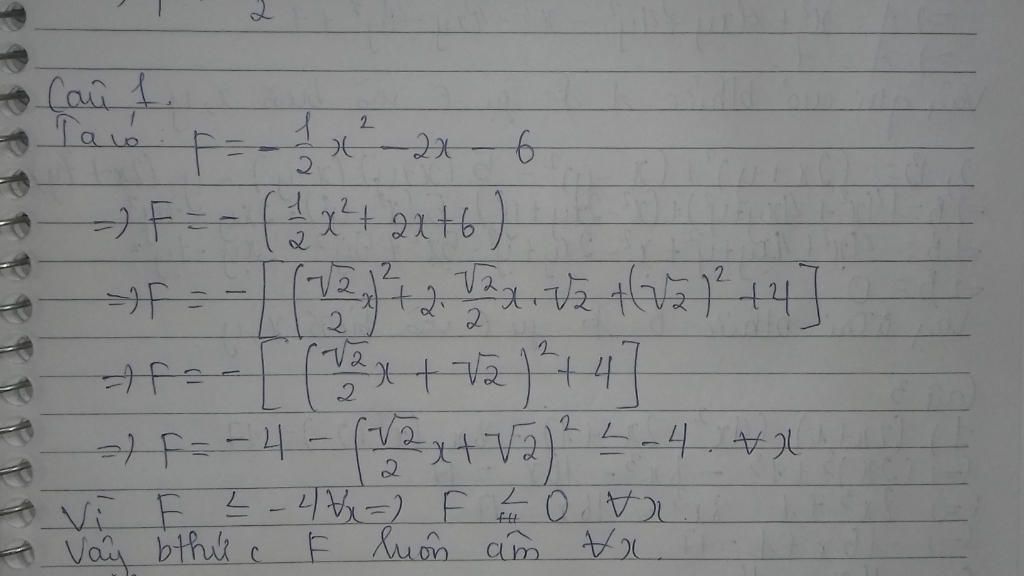 2
Câu 1.
Ta có: F = - 1/2 x² - 2x - 6
=> F = - (1/2 x² + 2x + 6)
=> F = - [(√2/2 x)² + 2. √2/2 x . √2 + (√2)² + 4]
=> F = - [(√2/2 x + √2)² + 4]
=> F = - 4 - (√2/2 x + √2)² ≤ - 4 . ∀x
Vì F ≤ - 4 ∀x => F < 0 ∀x.
Vậy bthức F luôn âm ∀x.